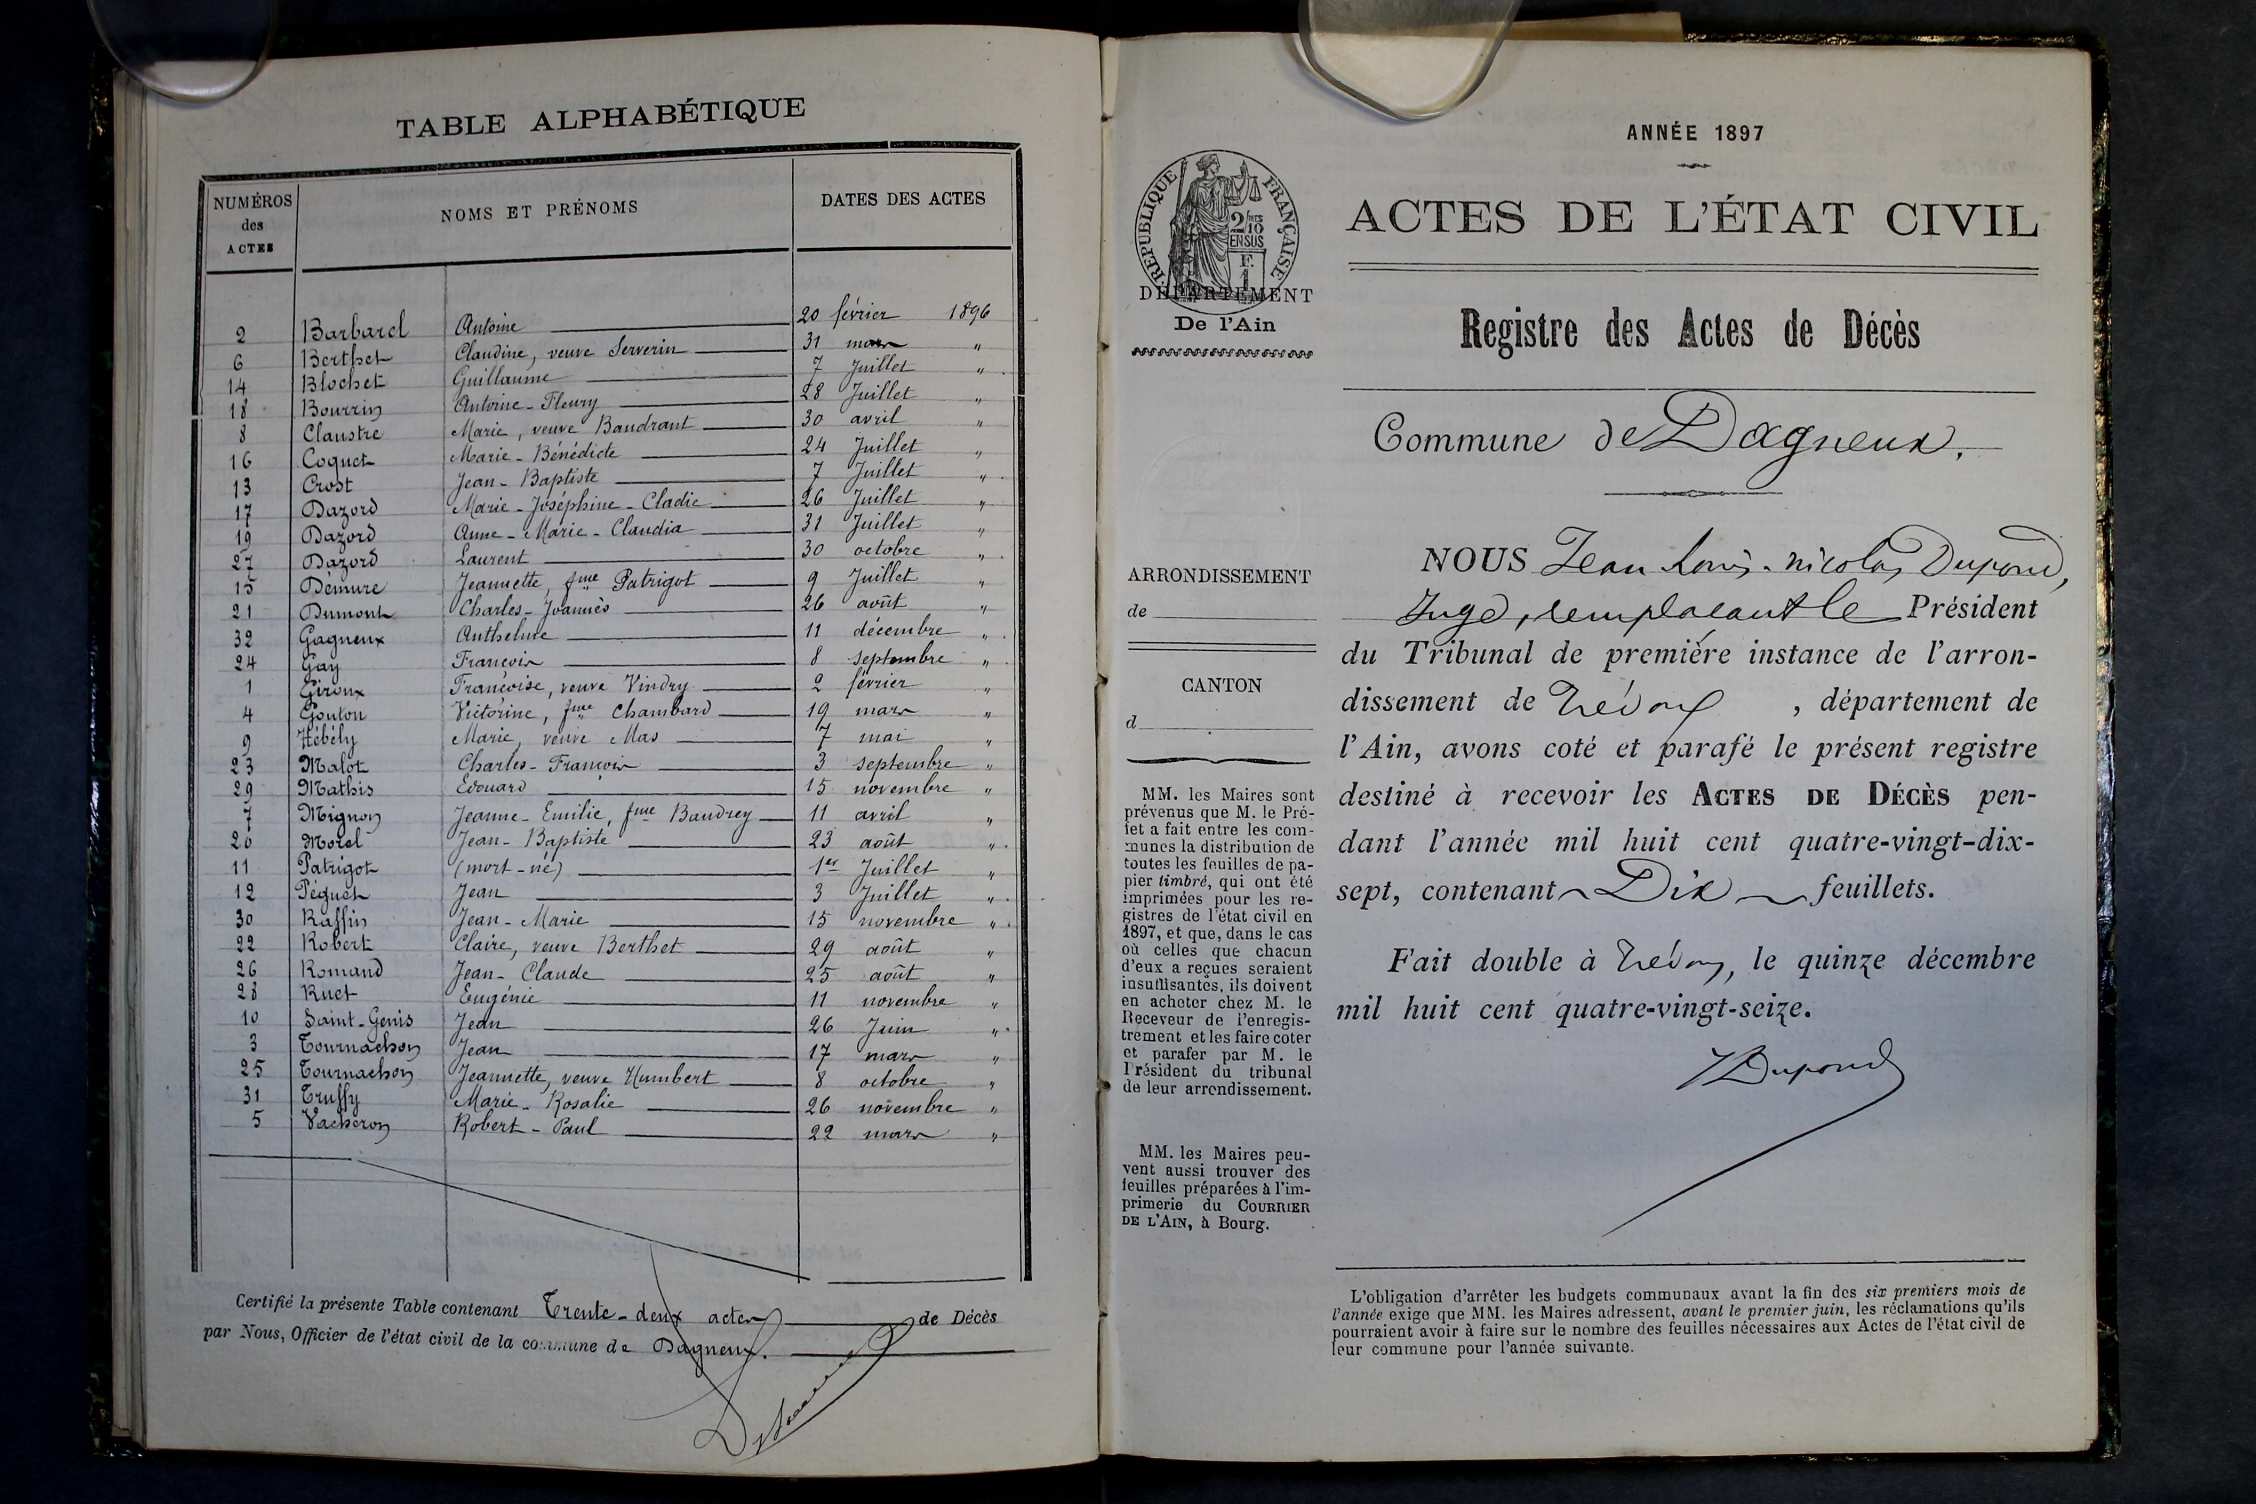 TABLE ALPHABÉTIQUE
NUMÉROS des ACTES NOMS ET PRÉNOMS DATES DES ACTES
2 Barbarel Antoine 20 février 1896
6 Berthet Claudine, veuve Serverin 31 mars "
14 Blochet Guillaume 7 Juillet "
18 Bourrin Antoine-Fleury 28 Juillet "
8 Claustre Marie, veuve Baudrant 30 avril "
16 Coquet Marie-Bénédicte 24 Juillet "
13 Crost Jean-Baptiste 7 Juillet "
17 Dazord Marie-Joséphine-Cladie 26 Juillet "
19 Dazord Anne-Marie-Claudia 31 Juillet "
27 Dazord Laurent 30 octobre "
15 Démure Jeannette, fme Patrigot 9 Juillet "
21 Dumont Charles-Joannès 26 août "
32 Gagneux Anthelme 11 décembre "
24 Gay François 8 septembre "
1 Giroux Françoise, veuve Vindry 2 février "
4 Gouton Victorine, fme Chambard 19 mars "
9 Hébély Marie, veuve Mas 7 mai "
23 Malot Charles-François 3 septembre "
29 Mathis Edouard 15 novembre "
7 Mignon Jeanne-Emilie, fme Baudrey 11 avril "
20 Morel Jean-Baptiste 23 août "
11 Patrigot (mort-né) 1er Juillet "
12 Péguet Jean 3 Juillet "
30 Raffin Jean-Marie 15 novembre "
22 Robert Claire, veuve Berthet 29 août "
26 Romand Jean-Claude 25 août "
28 Ruet Eugénie 11 novembre "
10 Saint-Genis Jean 26 Juin "
3 Tournachon Jean 17 mars "
25 Tournachon Jeannette, veuve Humbert 8 octobre "
31 Truffy Marie-Rosalie 26 novembre "
5 Vacheron Robert-Paul 22 mars "
Certifié la présente Table contenant Trente-deux actes de Décès
par Nous, Officier de l'état civil de la commune de Dagneux.
RÉPUBLIQUE FRANÇAISE
2/10 EN SUS
F. 1
DÉPARTEMENT
De l'Ain
ARRONDISSEMENT
de
CANTON
d
MM. les Maires sont
prévenus que M. le Pré-
fet a fait entre les com-
munes la distribution de
toutes les feuilles de pa-
pier timbré, qui ont été
imprimées pour les re-
gistres de l'état civil en
1897, et que, dans le cas
où celles que chacun
d'eux a reçues seraient
insuffisantes, ils doivent
en acheter chez M. le
Receveur de l'enregis-
trement et les faire coter
et parafer par M. le
Président du tribunal
de leur arrondissement.
MM. les Maires peu-
vent aussi trouver des
feuilles préparées à l'im-
primerie du COURRIER
DE L'AIN, à Bourg.
ANNÉE 1897
ACTES DE L'ÉTAT CIVIL
Registre des Actes de Décès
Commune de Dagneux.
NOUS Jean Louis-Nicolas Dupond,
Juge, remplacant le Président
du Tribunal de première instance de l'arron-
dissement de Trévoux, département de
l'Ain, avons coté et parafé le présent registre
destiné à recevoir les ACTES DE DÉCÈS pen-
dant l'année mil huit cent quatre-vingt-dix-
sept, contenant Dix feuillets.
Fait double à Trévoux, le quinze décembre
mil huit cent quatre-vingt-seize.
Dupond
L'obligation d'arrêter les budgets communaux avant la fin des six premiers mois de
l'année exige que MM. les Maires adressent, avant le premier juin, les réclamations qu'ils
pourraient avoir à faire sur le nombre des feuilles nécessaires aux Actes de l'état civil de
leur commune pour l'année suivante.